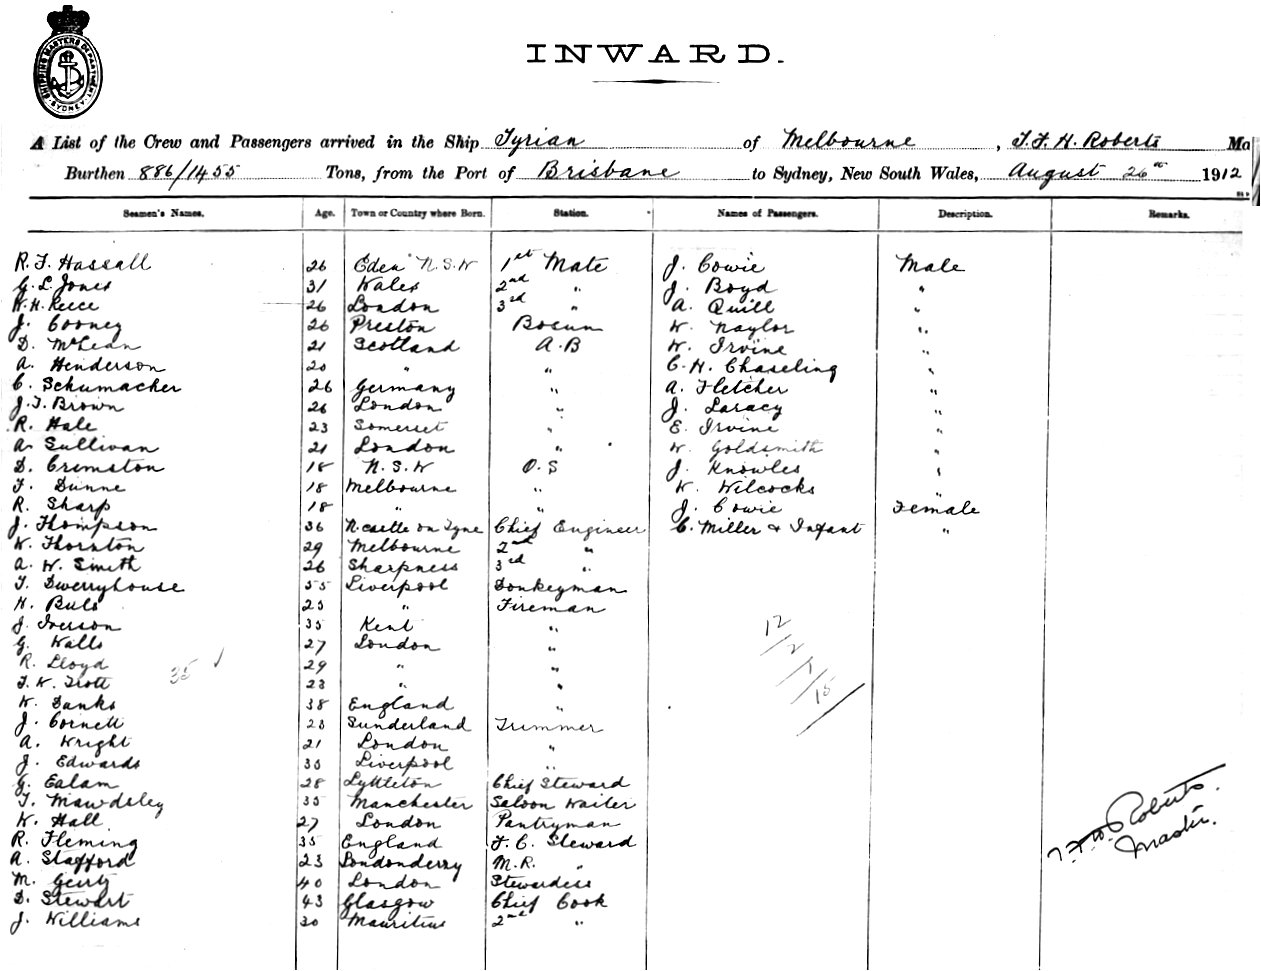 SHIPPING MASTERS DEPARTMENT
SYDNEY
INWARD.
A List of the Crew and Passengers arrived in the Ship Tyrian of Melbourne, T. F. H. Roberts Ma
Burthen 886/1455 Tons, from the Port of Brisbane to Sydney, New South Wales, August 26th 1912
Seamen's Names. Age. Town or Country where Born. Station. Names of Passengers. Description. Remarks.
R. F. Hassall 26 Eden N.S.W 1st Mate J. Cowie Male
G. L. Jones 31 Wales 2nd " J. Boyd "
H. H. Reece 26 London 3rd " A. Quill "
J. Cooney 26 Preston Bosun W. Naylor "
D. McLean 21 Scotland A.B W. Irvine "
A. Henderson 20 " " C. H. Chaseling "
C. Schumacher 26 Germany " A. Fletcher "
J. T. Brown 26 London " J. Laracy "
R. Hale 23 Somerset " E. Irvine "
A. Sullivan 21 London " W. Goldsmith "
D. Crimston 18 N.S.W O.S J. Knowles "
F. Dunne 18 Melbourne " W. Wilcocks "
R. Sharp 18 " " J. Cowie Female
J. Thompson 36 N.castle on Tyne Chief Engineer C. Miller & Infant "
W. Thornton 29 Melbourne 2nd "
A. W. Smith 26 Sharpness 3rd "
T. Dwerryhouse 55 Liverpool Donkeyman
H. Buls 25 " Fireman
J. Iverson 35 Kent "
G. Walls 27 London "
R. Lloyd 29 " "
T. W. Trott 23 " "
W. Danks 38 England "
J. Cornell 23 Sunderland Trimmer
A. Wright 21 London "
J. Edwards 35 Liverpool "
G. Ealam 28 Lyttleton Chief Steward
T. Mawdsley 35 Manchester Saloon Waiter
W. Hall 27 London Pantryman
R. Fleming 35 England F. C. Steward
A. Stafford 23 Londonderry M.R. "
M. 40 London Stewardess
D. Stewart 43 Glasgow Chief Cook
J. Williams 30 Mauritius 2nd "
35
12/2/1/15
T. F. H. Roberts.
Master.